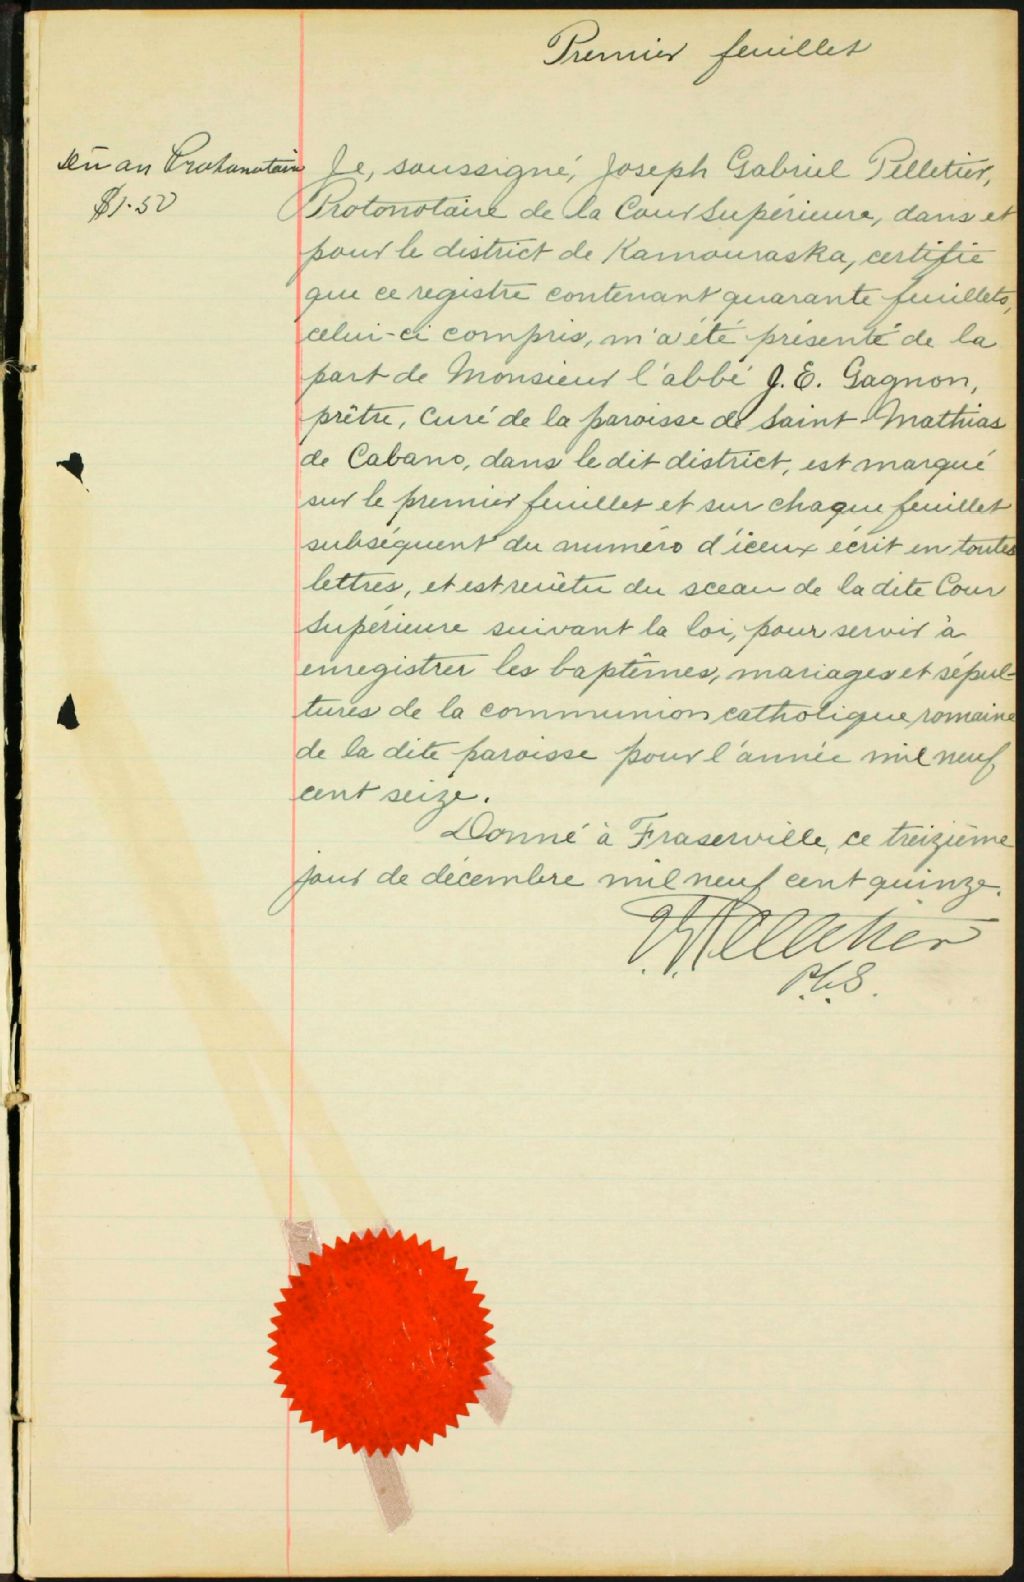 Premier feuillet
Dû au Protonotaire
$1.50
Je, soussigné, Joseph Gabriel Pelletier,
Protonotaire de la Cour Supérieure, dans et
pour le district de Kamouraska, certifie
que ce registre contenant quarante feuillets,
celui-ci compris, m'a été présenté de la
part de Monsieur l'abbé J. E. Gagnon,
prêtre, Curé de la paroisse de Saint-Mathias
de Cabano, dans le dit district, est marqué
sur le premier feuillet et sur chaque feuillet
subséquent du numéro d'iceux écrit en toutes
lettres, et est revêtu du sceau de la dite Cour
Supérieure suivant la loi, pour servir à
enregistrer les baptêmes, mariages et sépul-
tures de la communion catholique romaine
de la dite paroisse pour l'année mil neuf
cent seize.
Donné à Fraserville, ce treizième
jour de décembre mil neuf cent quinze.
J. G. Pelletier
P.C.S.